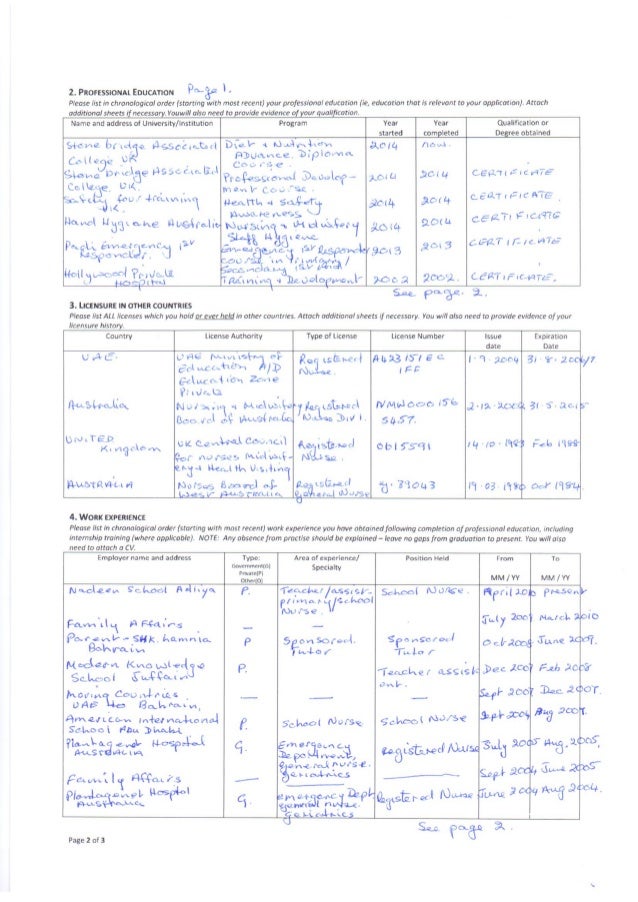 2. PROFESSIONAL EDUCATION Page 1.
Please list in chronological order (starting with most recent) your professional education (ie, education that is relevant to your application). Attach
additional sheets if necessary. You will also need to provide evidence of your qualification.
Name and address of University/Institution Program Year started Year completed Qualification or Degree obtained
Stonebridge Associated College UK Diet & Nutrition Advance Diploma Course. 2014 now.
Stonebridge Associated College. UK. Professional Develop-ment course. 2014 2014 CERTIFICATE
Safety for training UK. Health & Safety Awareness 2014 2014 CERTIFICATE.
Hand Hygiene Australia Nursing & Midwifery Staff Hygiene 2014 2014 CERTIFICATE
Emergency 1st Responder. Emergency 1st Responder course in Primary/ Secondary 1st Aid 2013 2013 CERTIFICATE
Hollywood Private Hospital Training & Development 2002 2002. CERTIFICATE.
See page. 2.
3. LICENSURE IN OTHER COUNTRIES
Please list ALL licenses which you hold or ever held in other countries. Attach additional sheets if necessary. You will also need to provide evidence of your
licensure history.
Country License Authority Type of License License Number Issue date Expiration Date
UAE. UAE Ministry of Education A/D Education Zone Private Registered Nurse. A423151EC IFF 1-9-2004 31-8-2006/7
Australia Nursing & Midwifery Board of Australia Registered Nurse Div 1. NMW000156 5457. 2-12- 31-5-2015
UNITED Kingdom UK Central Council for nurses midwif-ery & Health Visiting Registered Nurse. 14-10-1983 Feb 1988
AUSTRALIA Nurses Board of West AUSTRALIA Registered general Nurse 39043 19-03-1980 Oct 1984.
4. WORK EXPERIENCE
Please list in chronological order (starting with most recent) work experience you have obtained following completion of professional education, including
internship training (where applicable). NOTE: Any absence from practise should be explained – leave no gaps from graduation to present. You will also
need to attach a CV.
Employer name and address Type: Government(G) Private(P) Other(O) Area of experience/ Specialty Position Held From MM / YY To MM / YY
Nadeen School Adliya P. Teacher/assist- primary/school Nurse. School Nurse. April 2010 present
Family Affairs — — July 2009 March 2010
Parent - SHK. hamnia Bahrain P Sponsored. Tutor Sponsored Tutor Oct 2008 June 2009.
Modern Knowledge School Juffair P. Teacher assist ant. Dec 2007 Feb 2008
Moving Countries. UAE to Bahrain, — — Sept 2007 Dec 2007.
American International School Abu Dhabi P. School Nurse School Nurse Sept Aug 2007.
Plantagenet Hospital AUSTRALIA G. Emergency Department, general nurse. geriatrics Registered Nurse July 2005 Aug. 2005,
Family Affairs — Sept 2004 June 2005
Plantagenet Hosptal Australia G. emergency Dept general nurse. Geriatrics Registered Nurse June 2004 Aug 2004.
See page 2.
Page 2 of 3